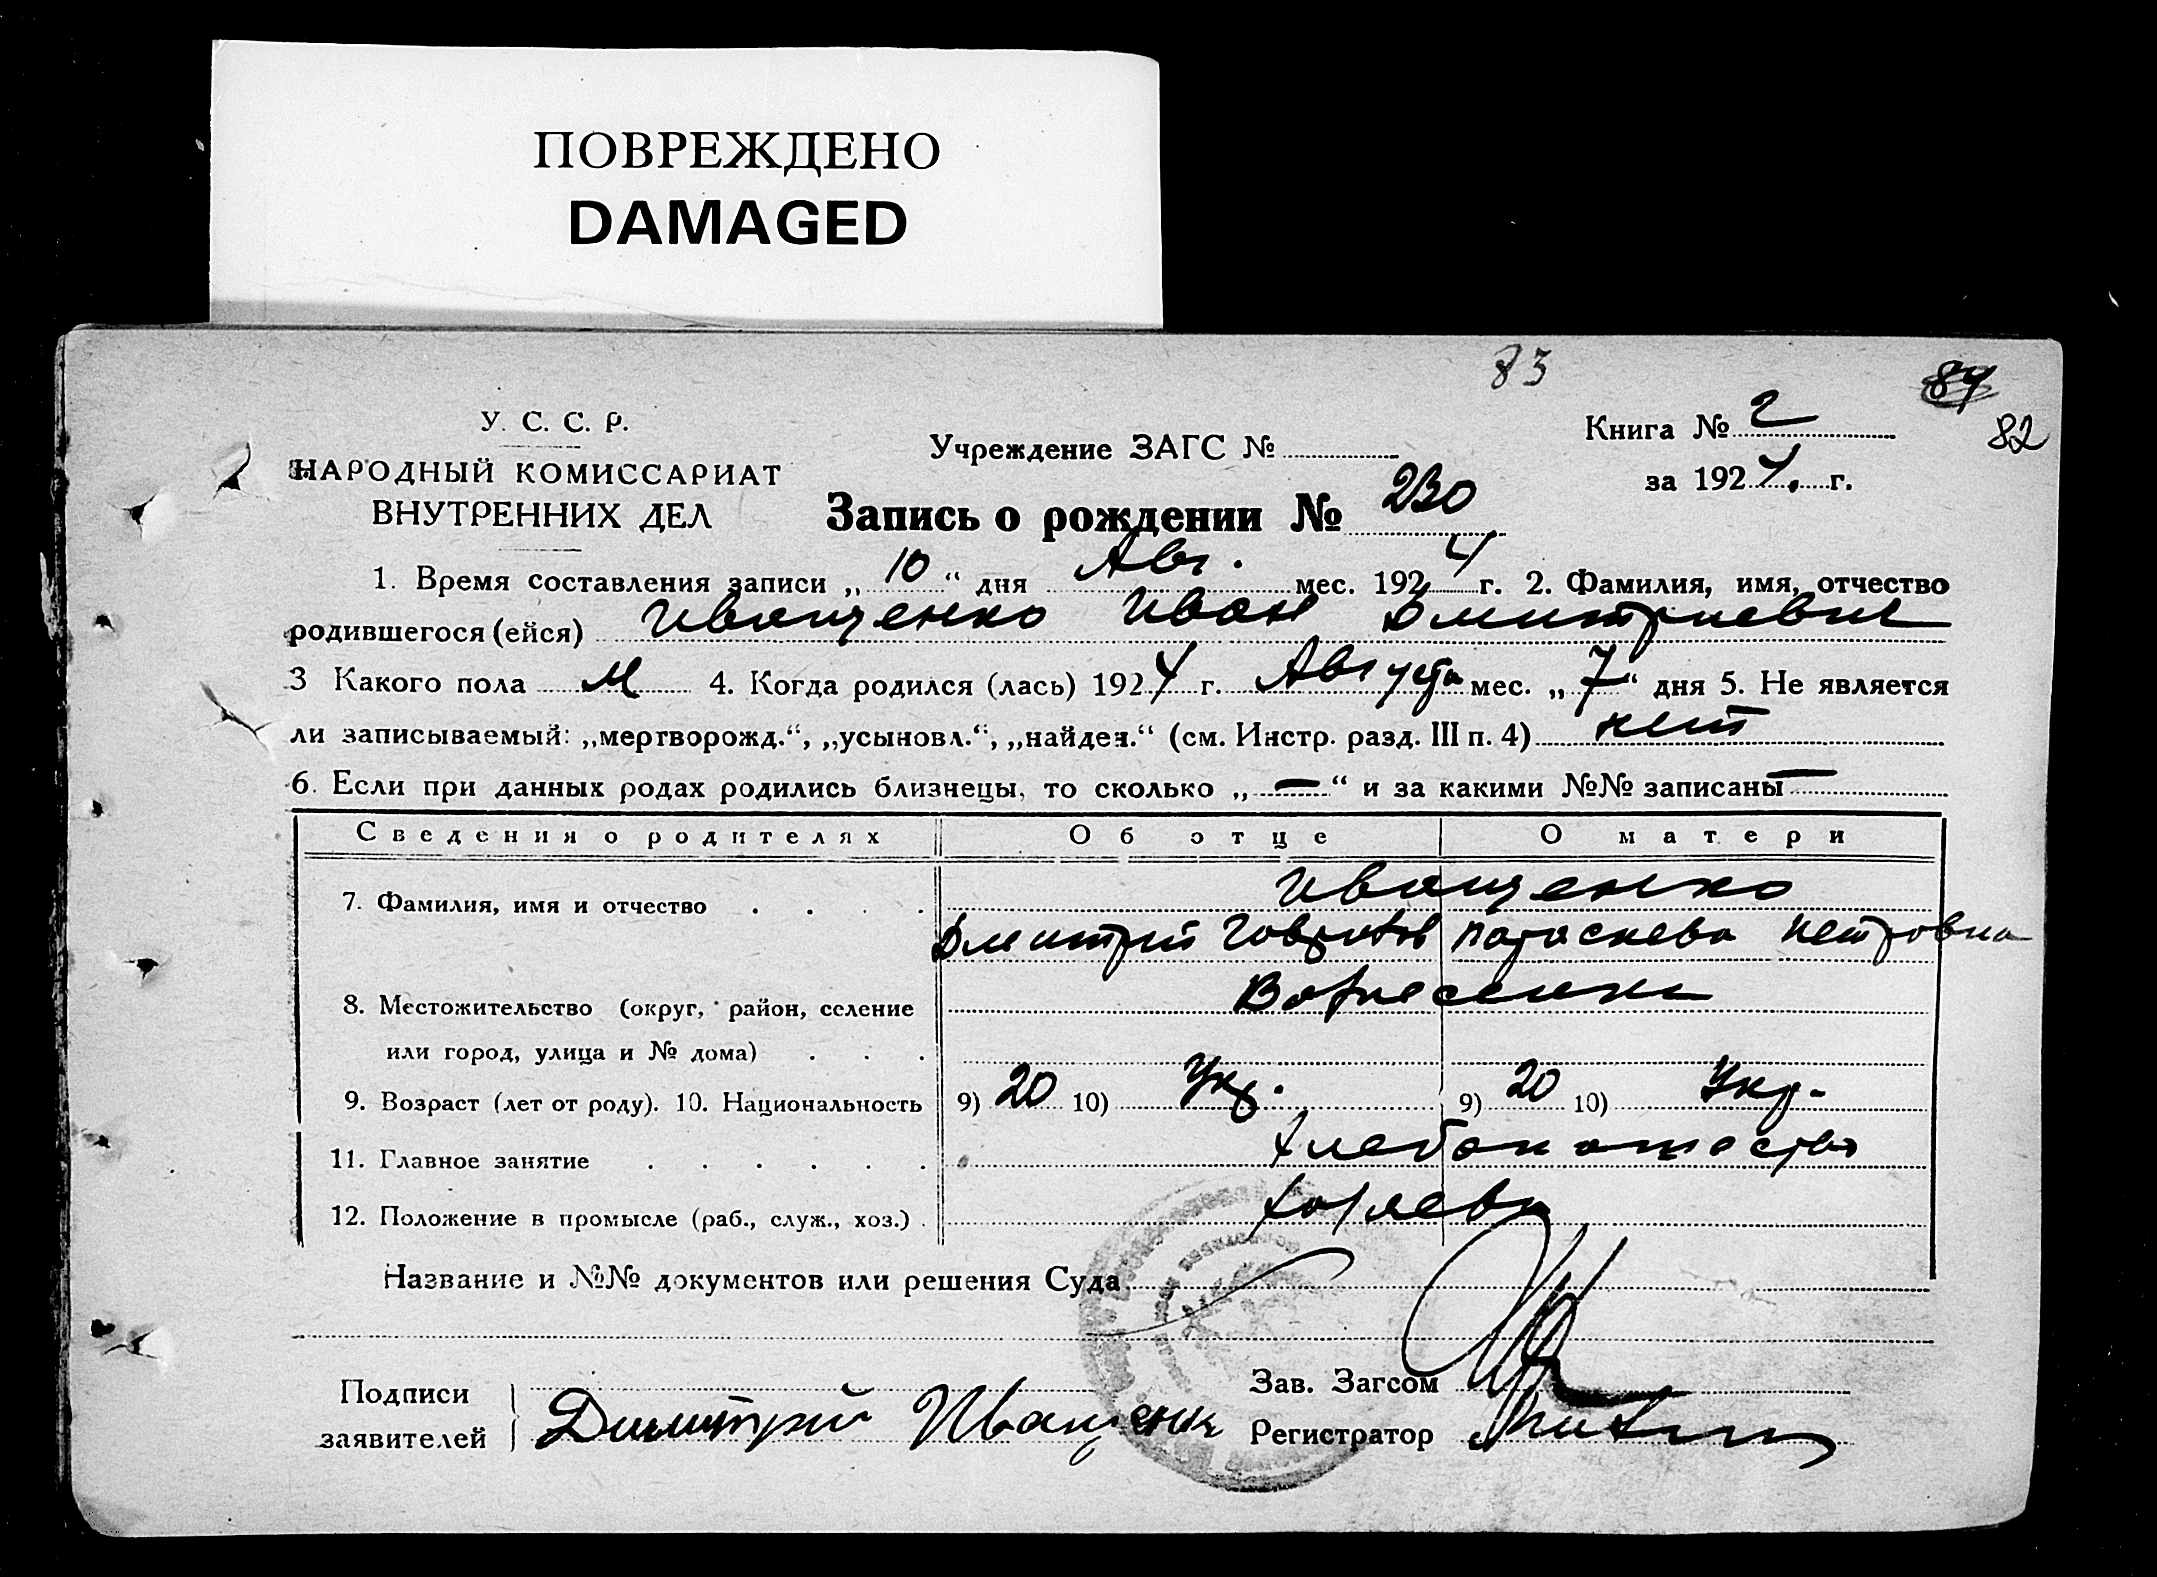 ПОВРЕЖДЕНО
DAMAGED
83
84
82
У. С. С. Р.
НАРОДНЫЙ КОМИССАРИАТ
ВНУТРЕННИХ ДЕЛ
Учреждение ЗАГС №
Книга № 2
за 1924 г.
Запись о рождении № 230
1. Время составления записи „ 10 “ дня Авг. мес. 1924 г. 2. Фамилия, имя, отчество
родившегося (ейся) Иващенко Иван Дмитриевич
3 Какого пола М 4. Когда родился (лась) 1924 г. Августа мес. „ 7 “ дня 5. Не является
ли записываемый: „мертворожд.“, „усыновл.“, „найден.“ (см. Инстр. разд. III п. 4) нет
6. Если при данных родах родились близнецы, то сколько „ — “ и за какими №№ записаны —
Сведения о родителях Об отце О матери
7. Фамилия, имя и отчество . . . . Иващенко
Дмитрий Параскева Петровна
8. Местожительство (округ, район, селение
или город, улица и № дома) . . .
9. Возраст (лет от роду). 10. Национальность 9) 20 10) Укр. 9) 20 10) Укр.
11. Главное занятие . . . . . . Хлебопашество
12. Положение в промысле (раб., служ., хоз.) . хозяева
Название и №№ документов или решения Суда
Подписи
заявителей Димитрий Иващенк
Зав. Загсом
Регистратор